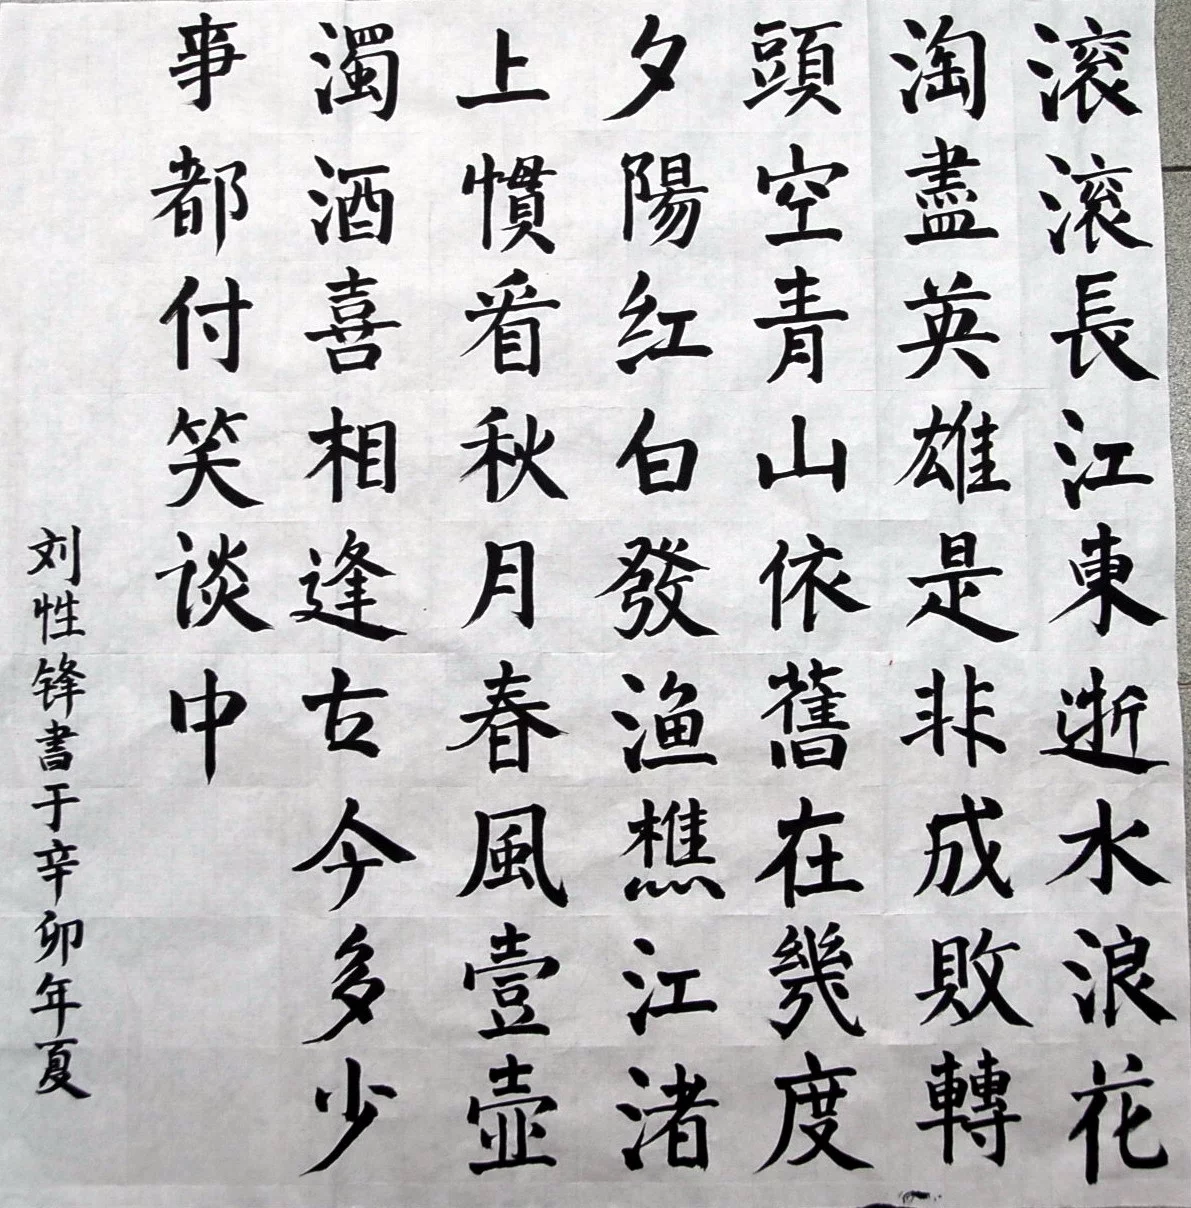 滚滚長江東逝水浪花
淘盡英雄是非成敗轉
頭空青山依舊在幾度
夕陽红白發渔樵江渚
上慣看秋月春風壹壺
濁酒喜相逢古今多少
事都付笑谈中
刘性锋書于辛卯年夏